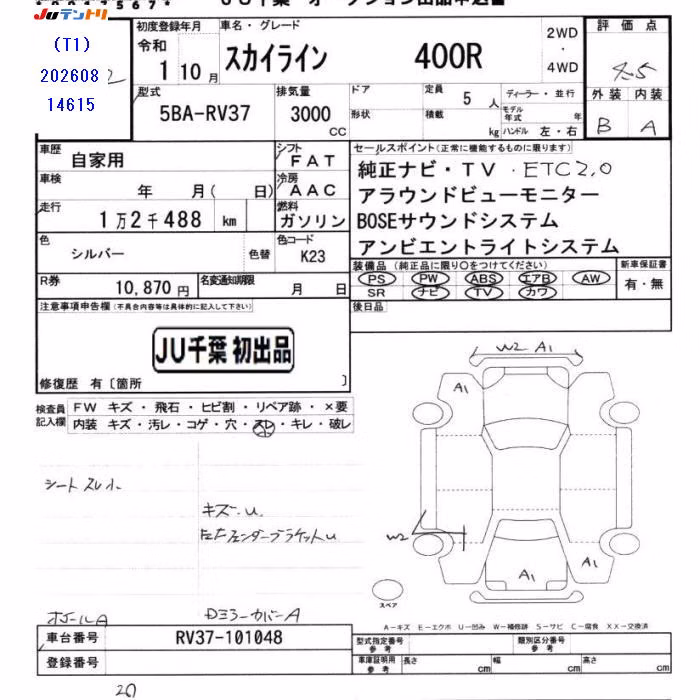 JUテントリ
JU千葉 オークション出品申込書
(T1)
202608
14615
初度登録年月
令和
1 10 月
車名・グレード
スカイライン 400R
2WD
・
4WD
評価点
4.5
外装 内装
B A
型式
5BA-RV37
排気量
3000 CC
ドア
形状
定員
5 人
積載
kg
ディーラー・並行
モデル年式 年
ハンドル 左・右
車歴
自家用
シフト
FAT
車検
年 月( 日)
冷房
AAC
走行
1万2千488 km
燃料
ガソリン
色
シルバー
色替
色コード
K23
R券
10,870 円
名変通知期限
月 日
セールスポイント(正常に機能するものに限ります)
純正ナビ・TV ・ETC2.0
アラウンドビューモニター
BOSEサウンドシステム
アンビエントライトシステム
装備品 (純正品に限り○をつけてください)
PS PW ABS エアB AW
SR ナビ TV カワ
新車保証書
有・無
後日品
注意事項申告欄(不具合内容等は具体的に記入して下さい)
JU千葉 初出品
修復歴 有〔箇所 〕
検査員記入欄
FW キズ・飛石・ヒビ割・リペア跡・×要
内装 キズ・汚レ・コゲ・穴・スレ・キレ・破レ
シートスレ小
キズ・U
左Fフェンダーブラケットu
ホイールA
DミラーカバーA
W2 A1
A1
W2
A1
A1
スペア
A-キズ E-エクボ U-凹み W-補修跡 S-サビ C-腐食 XX-交換済
車台番号 RV37-101048
登録番号
型式指定番号 参考
類別区分番号 参考
車庫証明用 参考
長さ cm
幅 cm
高さ cm